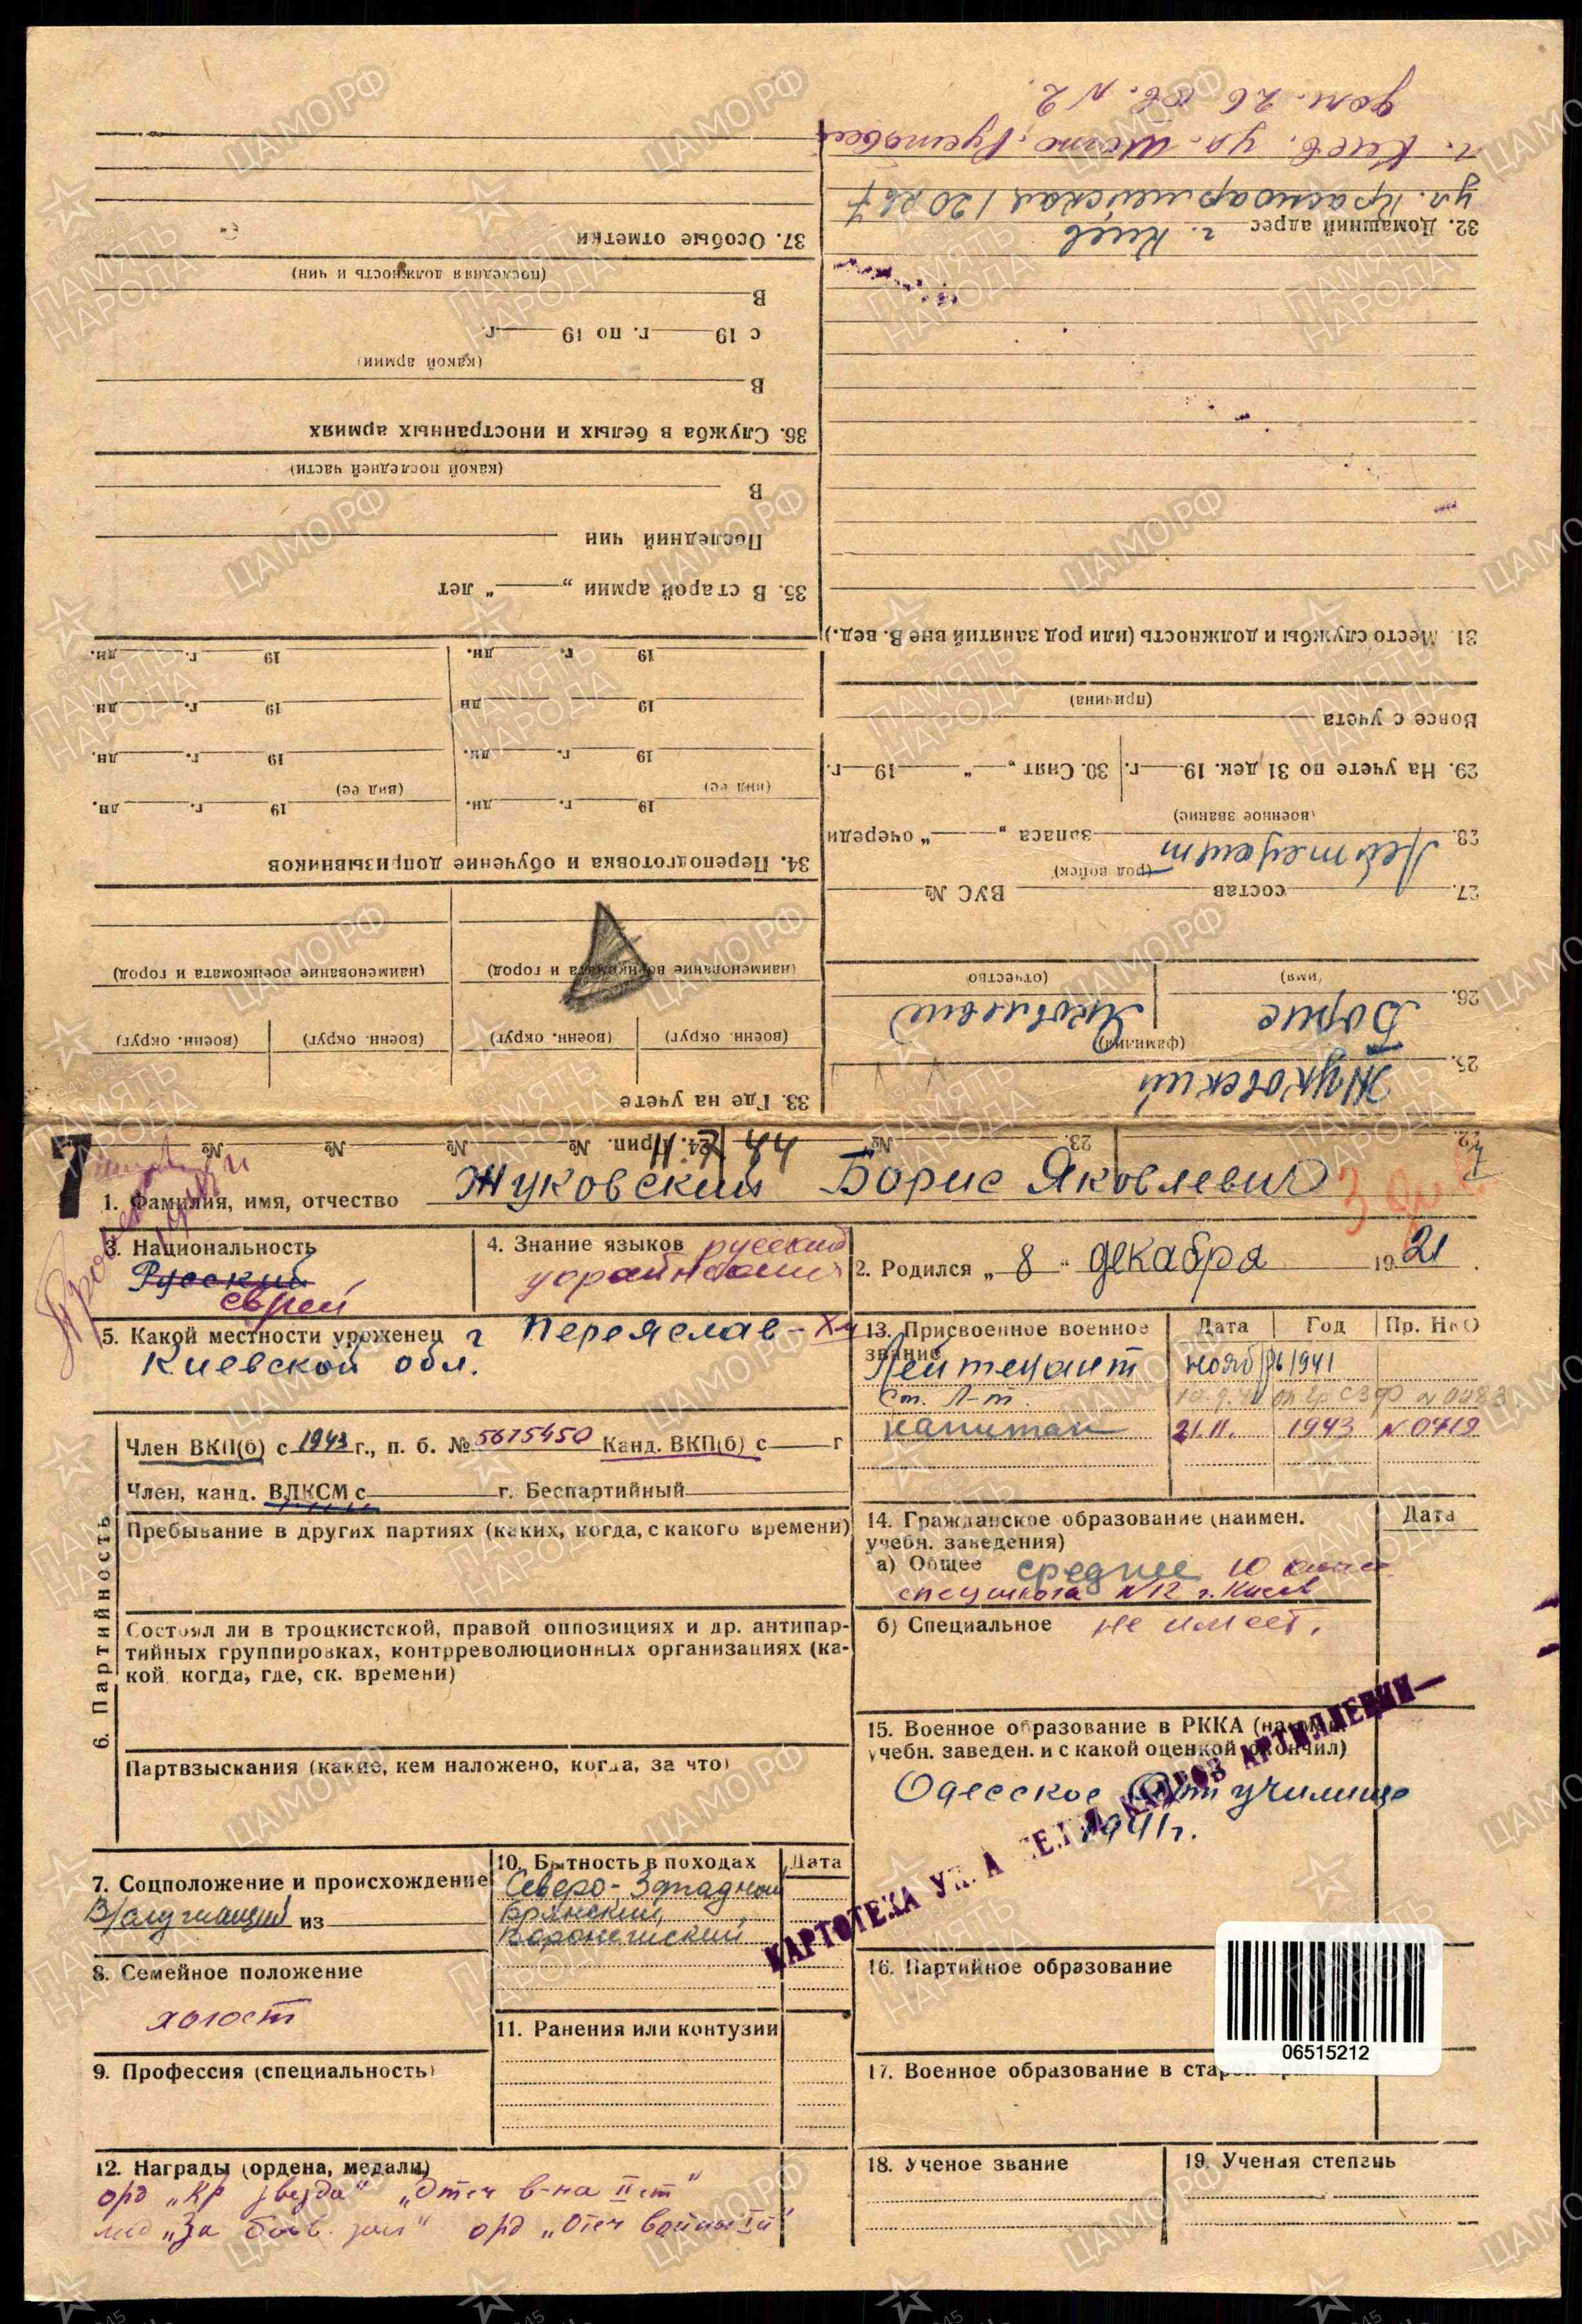 дом. 26 кв. №2.
г. Киев. ул. Шота-Руставели
ул. Красноармейская 120 кв 7
32. Домашний адрес г. Киев
31. Место службы и должность (или род занятий вне В. вед.)
(причина)
Вовсе с учета
29. На учете по 31 дек. 19 г. 30. Снят „ “ 19 г.
(военное звание)
28. Лейтенант запаса „ “ очереди
(род войск)
27. состав ВУС №
(имя) (отчество)
26. Борис Яковлевич
(фамилия)
25. Жуковский
37. Особые отметки
(последняя должность и чин)
В
с 19 г. по 19 г.
(какой армии)
В
36. Служба в белых и иностранных армиях
(какой последней части)
В
Последний чин
35. В старой армии „ “ лет
19 г. дн. 19 г. дн.
19 дн 19 г. дн
19 г. дн. 19 г. дн.
(вид ее) (вид ее)
19 г. дн. 19 г. дн.
34. Переподготовка и обучение допризывников
(наименование военкомата и город) (наименование военкомата и город)
(военн. округ) (военн. округ) (военн. округ) (военн. округ)
33. Где на учете
22. 23. № 24. Прип. № № № №
7
1. Фамилия, имя, отчество Жуковский Борис Яковлевич
3. Национальность
Русский
еврей
4. Знание языков русский
украинский
2. Родился „ 8 “ декабря 1921.
5. Какой местности уроженец г Переяслав-Хм
Киевской обл.
13. Присвоенное военное звание Дата Год Пр. НКО
Лейтенант ноябрь 1941
Ст. Л-т.
капитан 21.11. 1943 №0719
6. Партийность
Член ВКП(б) с 1943 г., п. б. № 5615450 Канд. ВКП(б) с г
Член, канд. ВЛКСМ с г. Беспартийный
Пребывание в других партиях (каких, когда, с какого времени)
Состоял ли в троцкистской, правой оппозициях и др. антипар-
тийных группировках, контрреволюционных организациях (ка-
кой когда, где, ск. времени)
Партвзыскания (какие, кем наложено, когда, за что)
14. Гражданское образование (наимен. Дата
учебн. заведения)
а) Общее среднее 10 класс
спецшкола №12 г. Киев
б) Специальное не имеет.
15. Военное образование в РККА (наимен.
учебн. заведен. и с какой оценкой окончил)
Одесское Арт училище
1941г.
КАРТОТЕКА КАДРОВ АРТИЛЛЕРИИ
7. Соцположение и происхождение
В/служащий из
8. Семейное положение
холост
9. Профессия (специальность)
10. Бытность в походах Дата
Северо-Западный
Брянский,
Воронежский
11. Ранения или контузии
16. Партийное образование
06515212
17. Военное образование в старой армии
12. Награды (ордена, медали)
орд „Кр звезда“ „Отеч в-на II ст“
мед „За боев. зас“ орд „Отеч войны I ст“
18. Ученое звание
19. Ученая степень
ЦАМО.РФ
ПАМЯТЬ НАРОДА